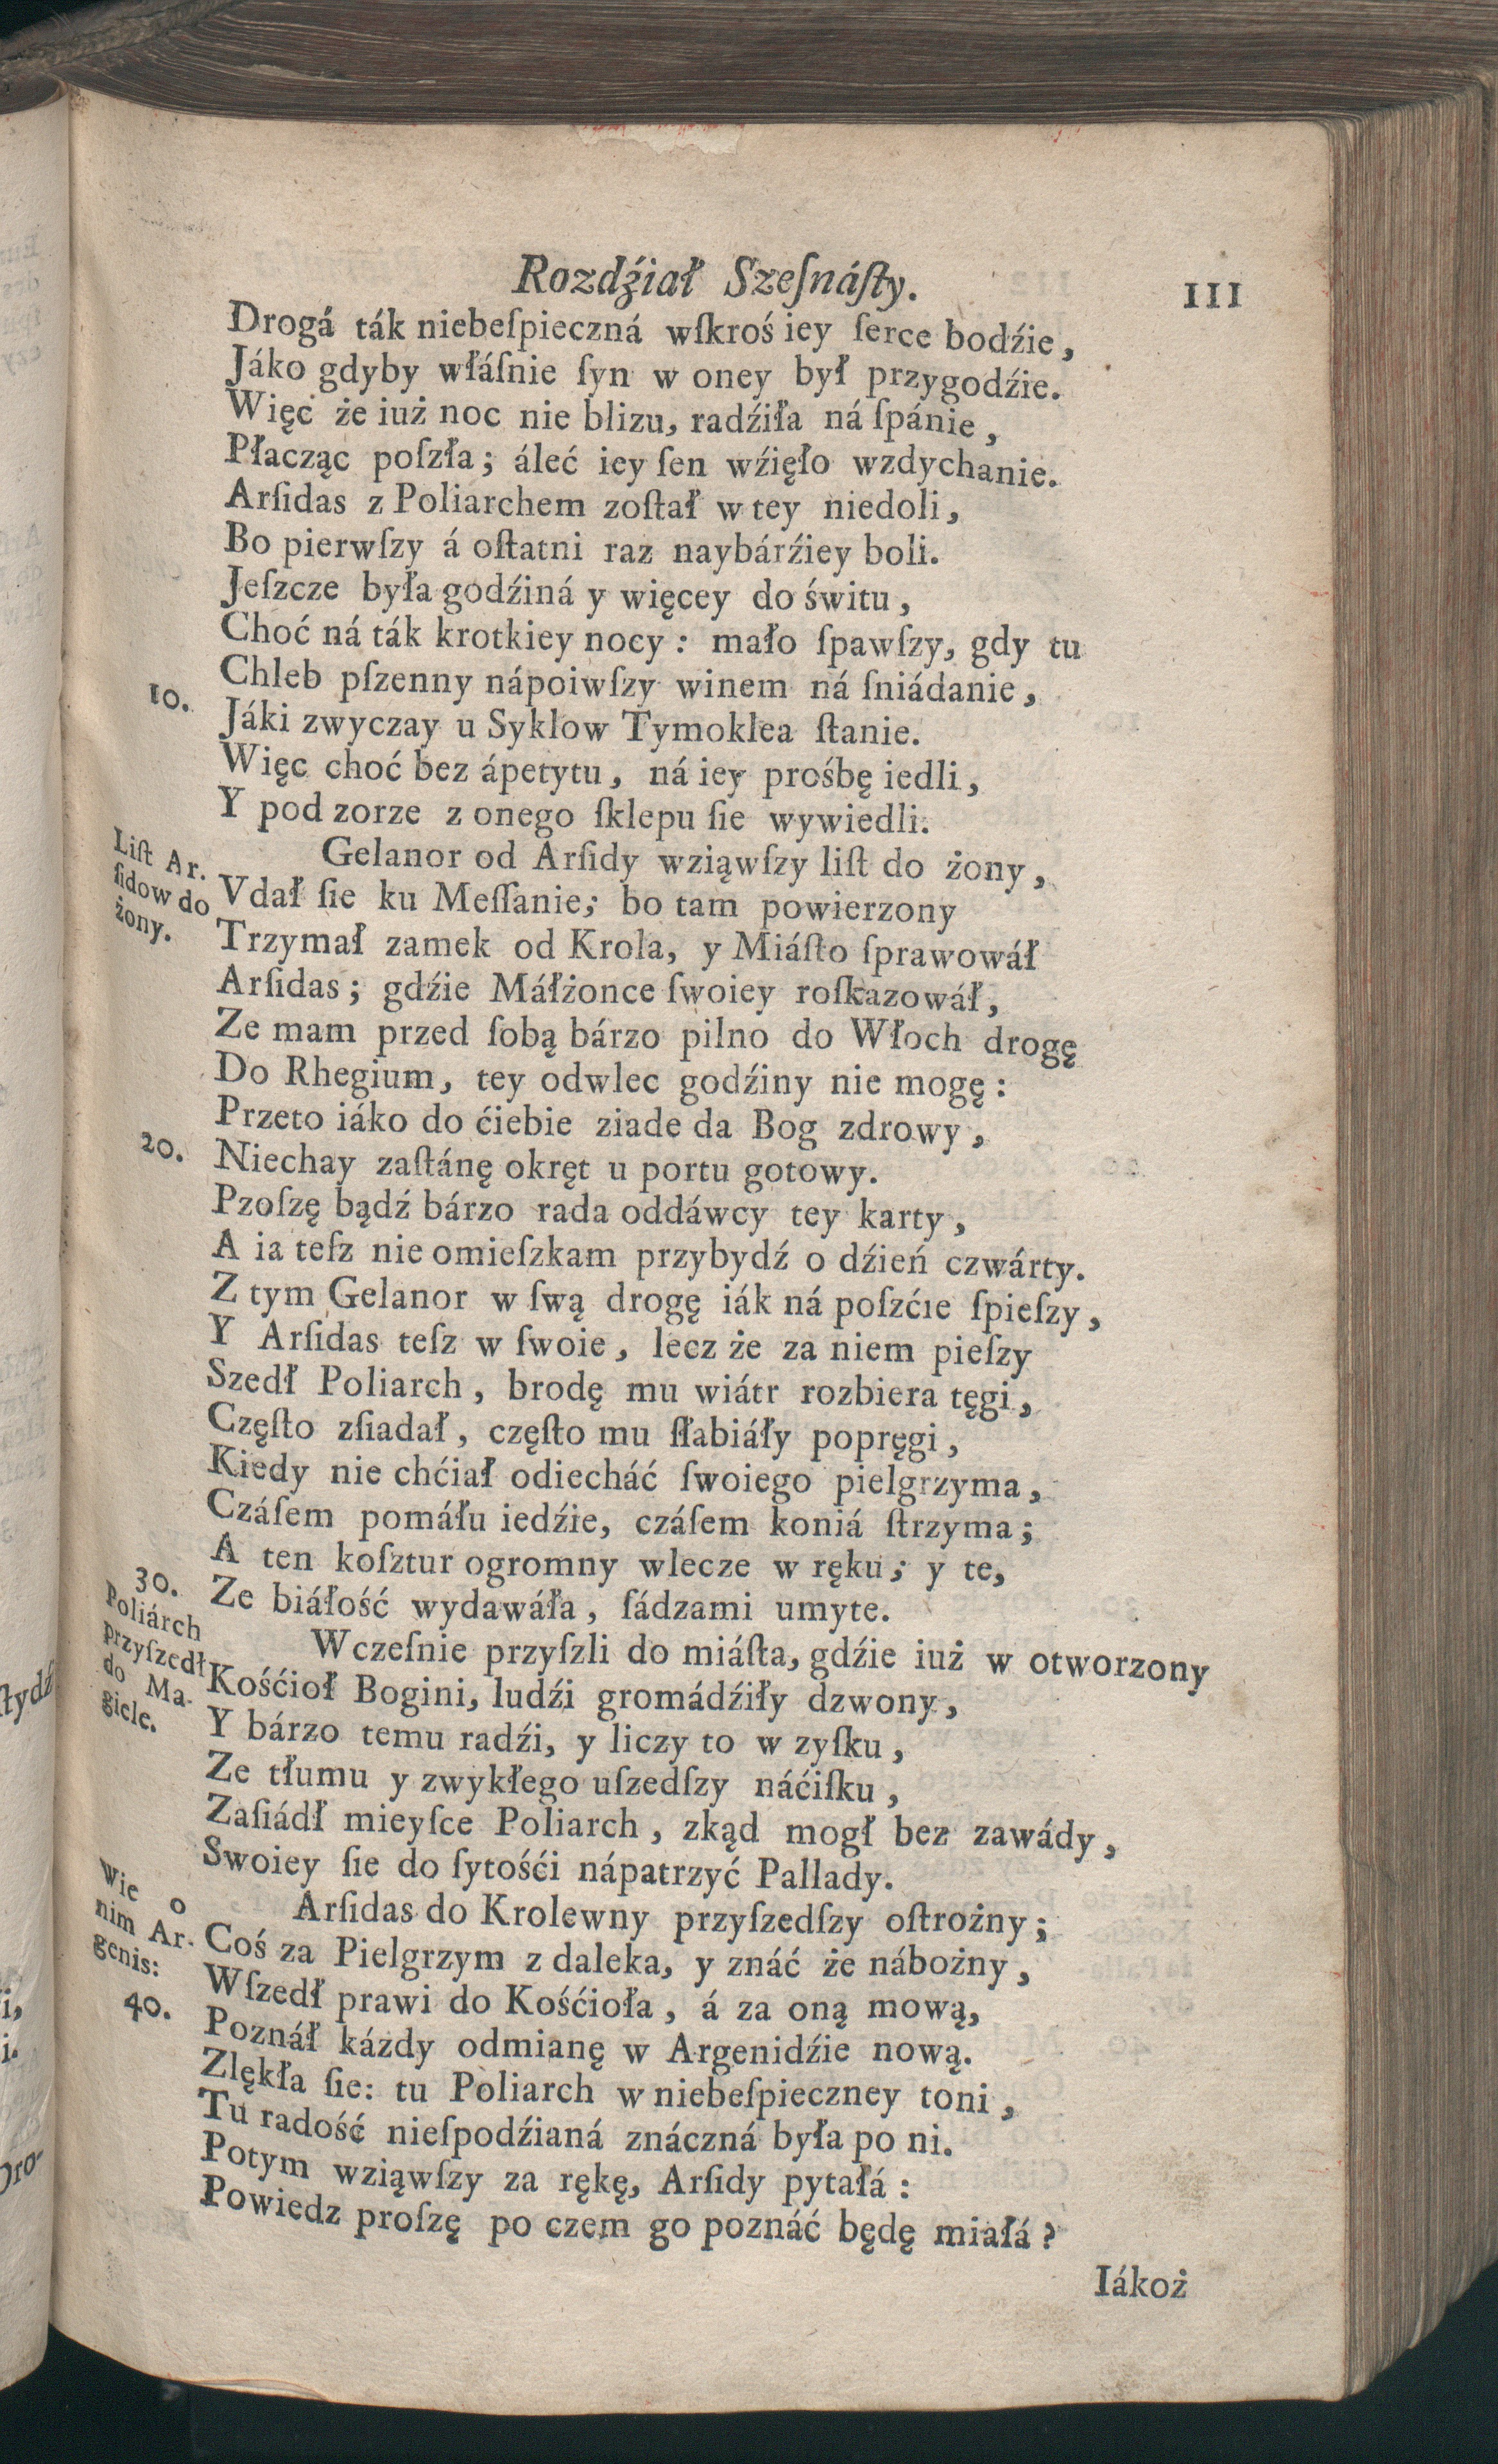 Rozdźiał Szeſnáſty. 111
Drogá ták niebeſpieczná wſkroś iey ſerce bodźie,
Jáko gdyby włáſnie ſyn w oney był przygodźie.
Więc że iuż noc nie blizu, radźiła ná ſpánie,
Płacząc poſzła; áleć iey ſen wźięło wzdychanie.
Arſidas z Poliarchem zoſtał w tey niedoli,
Bo pierwſzy á oſtatni raz naybárźiey boli.
Jeſzcze była godźiná y więcey do świtu,
Choć ná ták krotkiey nocy: mało ſpawſzy, gdy tu
Chleb pſzenny nápoiwſzy winem ná ſniádanie,
10. Jáki zwyczay u Syklow Tymoklea ſtanie.
Więc choć bez ápetytu, ná iey prośbę iedli,
Y pod zorze z onego ſklepu ſie wywiedli.
Liſt Ar.
ſidow do
żony.
Gelanor od Arſidy wziąwſzy liſt do żony,
Vdał ſie ku Meſſanie; bo tam powierzony
Trzymał zamek od Krola, y Miáſto ſprawowáł
Arſidas; gdźie Máłżonce ſwoiey roſkazowáł,
Ze mam przed ſobą bárzo pilno do Włoch drogę
Do Rhegium, tey odwlec godźiny nie mogę:
Przeto iáko do ćiebie ziade da Bog zdrowy,
20. Niechay zaſtánę okręt u portu gotowy.
Pzoſzę bądź bárzo rada oddáwcy tey karty,
A ia teſz nie omieſzkam przybydź o dźień czwárty.
Z tym Gelanor w ſwą drogę iák ná poſzćie ſpieſzy,
Y Arſidas teſz w ſwoie, lecz że za niem pieſzy
Szedł Poliarch, brodę mu wiátr rozbiera tęgi,
Częſto zſiadał, częſto mu ſłabiáły popręgi,
Kiedy nie chćiał odiecháć ſwoiego pielgrzyma,
Czáſem pomáłu iedźie, czáſem koniá ſtrzyma;
A ten koſztur ogromny wlecze w ręku; y te,
30. Ze biáłość wydawáła, ſádzami umyte.
Poliárch
przyſzedł
do Ma-
giele.
Wczeſnie przyſzli do miáſta, gdźie iuż w otworzony
Kośćioł Bogini, ludźi gromádźiły dzwony,
Y bárzo temu radźi, y liczy to w zyſku,
Ze tłumu y zwykłego uſzedſzy náćiſku,
Zaſiádł mieyſce Poliarch, zkąd mogł bez zawády,
Swoiey ſie do ſytośći nápatrzyć Pallady.
Wie o
nim Ar-
genis:
Arſidas do Krolewny przyſzedſzy oſtrożny;
Coś za Pielgrzym z daleka, y znáć że nábożny,
Wſzedł prawi do Kośćioła, á za oną mową,
40. Poznáł kázdy odmianę w Argenidźie nową.
Zlękła ſie: tu Poliarch w niebeſpieczney toni,
Tu radość nieſpodźianá znáczná była po ni.
Potym wziąwſzy za rękę, Arſidy pytałá:
Powiedz proſzę po czem go poznáć będę miałá?
Iákoż